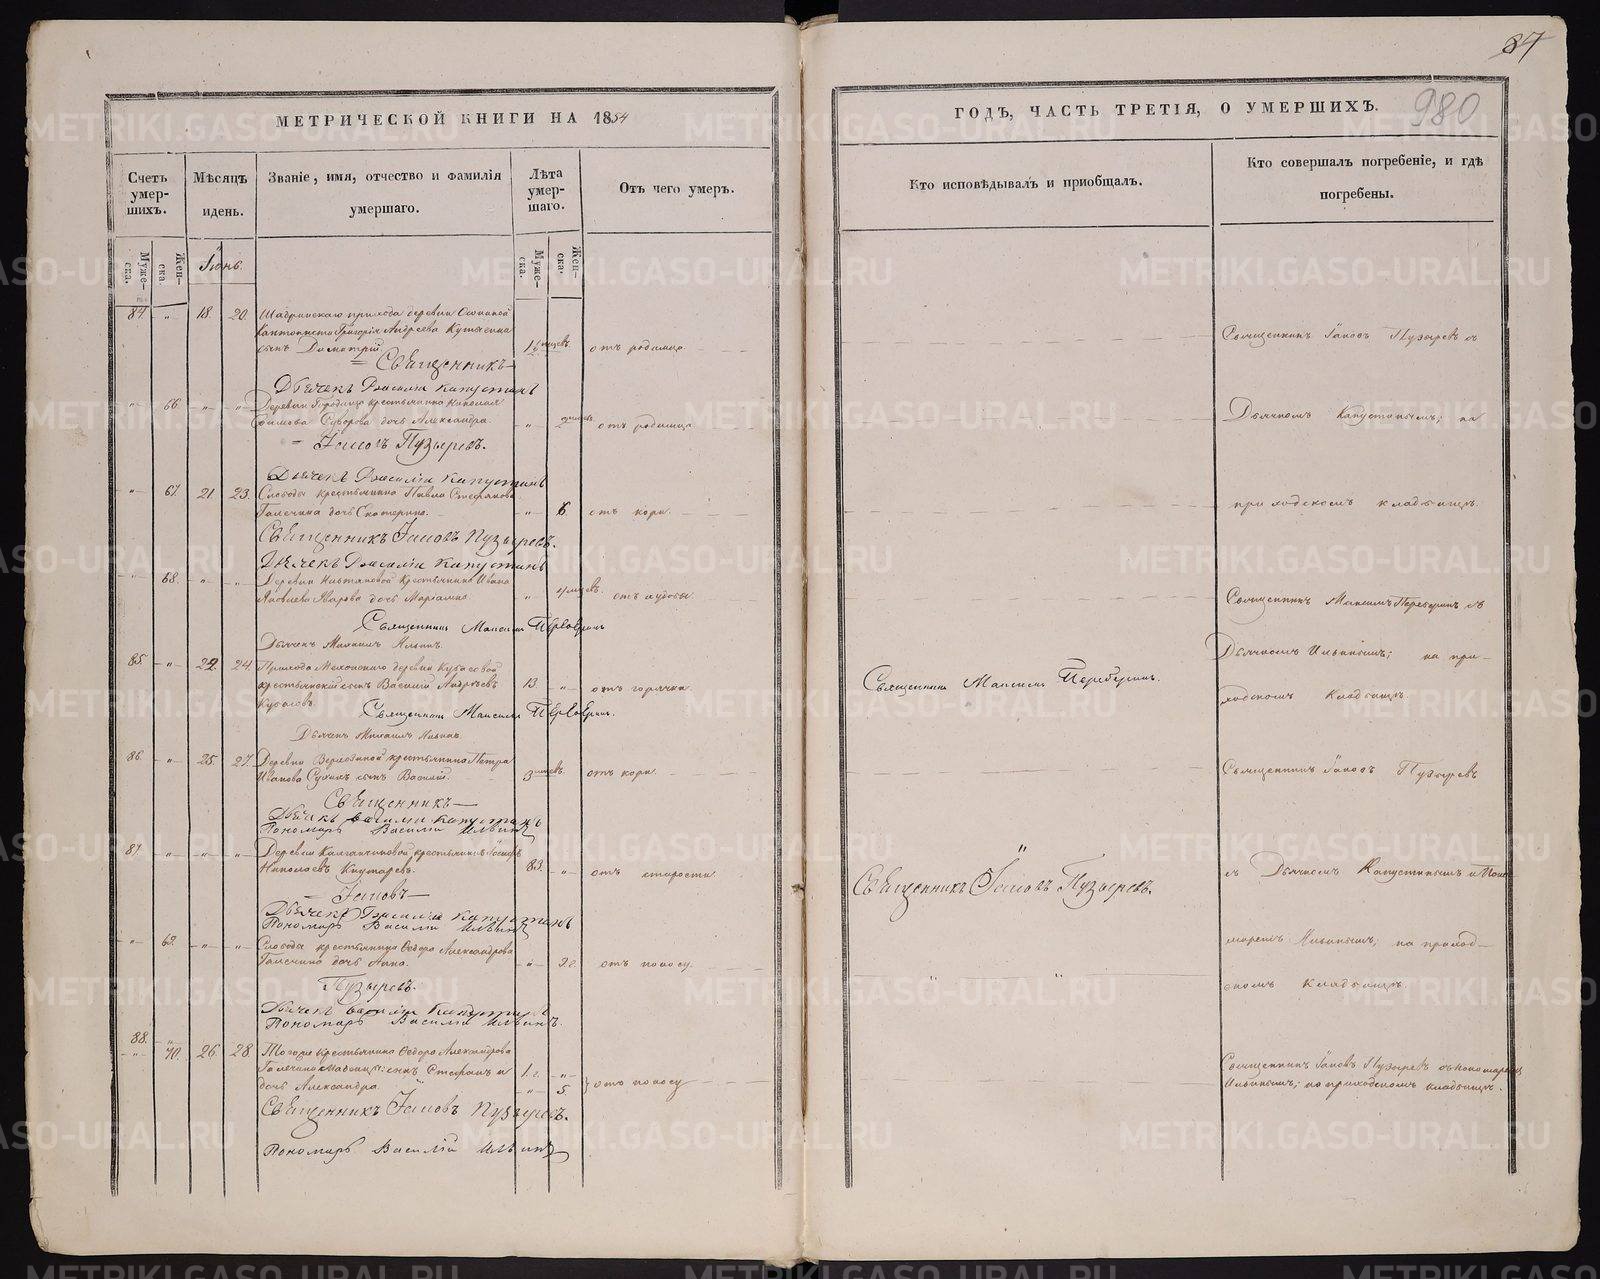 87
980
МЕТРИЧЕСКОЙ КНИГИ НА 1854
ГОДЪ, ЧАСТЬ ТРЕТІЯ, О УМЕРШИХЪ.
Счетъ умер-
шихъ.
Мѣсяцъ
и день.
Званіе, имя, отчество и фамилія
умершаго.
Лѣта
умер-
шаго.
Отъ чего умеръ.
Кто исповѣдывалъ и приобщалъ.
Кто совершалъ погребеніе, и гдѣ
погребены.
Муже-
ска.
Жен-
ска.
Іюнь.
Муже-
ска.
Жен-
ска.
84 18. 20. деревни
Григорія Андреева
сынъ Димитрій отъ родимца
Священникъ Іаковъ Пузыревъ съ
Священникъ
Дьячекъ Василій Капустинъ
66. Деревни крестьянина Николая
Суворова дочь Александра. отъ родимца
Дьячкомъ Капустинымъ; на
Іаковъ Пузыревъ.
Дьячекъ Василій Капустинъ
67. 21. 23. Слободы крестьянина Павла Стефанова
Галечина дочь Екатерина. 6. отъ кори.
приходскомъ кладбищѣ.
Священникъ Іаковъ Пузыревъ.
Дьячекъ Василій Капустинъ
68. Деревни крестьянина Ивана
Яковлева дочь отъ худобы.
Священникъ Максимъ съ
Священникъ Максимъ
Дьячекъ Михаилъ Ильинъ.
Дьячкомъ Ильинымъ; на при-
85. 22. 24. Прихода деревни Кубасовой
крестьянскій сынъ Василій Андреевъ 13. отъ горячки.
Кубасовъ.
Священникъ Максимъ
ходскомъ кладбищѣ.
Священникъ Максимъ
Дьячекъ Михаилъ Ильинъ.
86. 25. 27. Деревни крестьянина Петра
Иванова сынъ Василій. 3 отъ кори.
Священникъ Іаковъ Пузыревъ
Священникъ
Дьячекъ Василій Капустинъ
Пономарь Василій Ильинъ
87. Деревни крестьянинъ
Николаевъ 83. отъ старости.
Священникъ Іаковъ Пузыревъ.
съ Дьячкомъ Капустинымъ и Поно-
Іаковъ
Дьячекъ Василій Капустинъ
Пономарь Василій Ильинъ
69. Слободы крестьянина Ѳедора Александрова
Галечина дочь Анна. 2 г. отъ поносу.
маремъ Ильинымъ; на приход-
скомъ кладбищѣ.
Пузыревъ.
Дьячекъ Василій Капустинъ
Пономарь Василій Ильинъ.
88.
70. 26. 28. Тогоже крестьянина Ѳедора Александрова
Галечина сынъ Стефанъ и 1 г.
дочь Александра 5. отъ поносу
Священникъ Іаковъ Пузыревъ съ пономаремъ
Ильинымъ; на приходскомъ кладбищѣ.
Священникъ Іаковъ Пузыревъ.
Пономарь Василій Ильинъ
METRIKI.GASO-URAL.RU